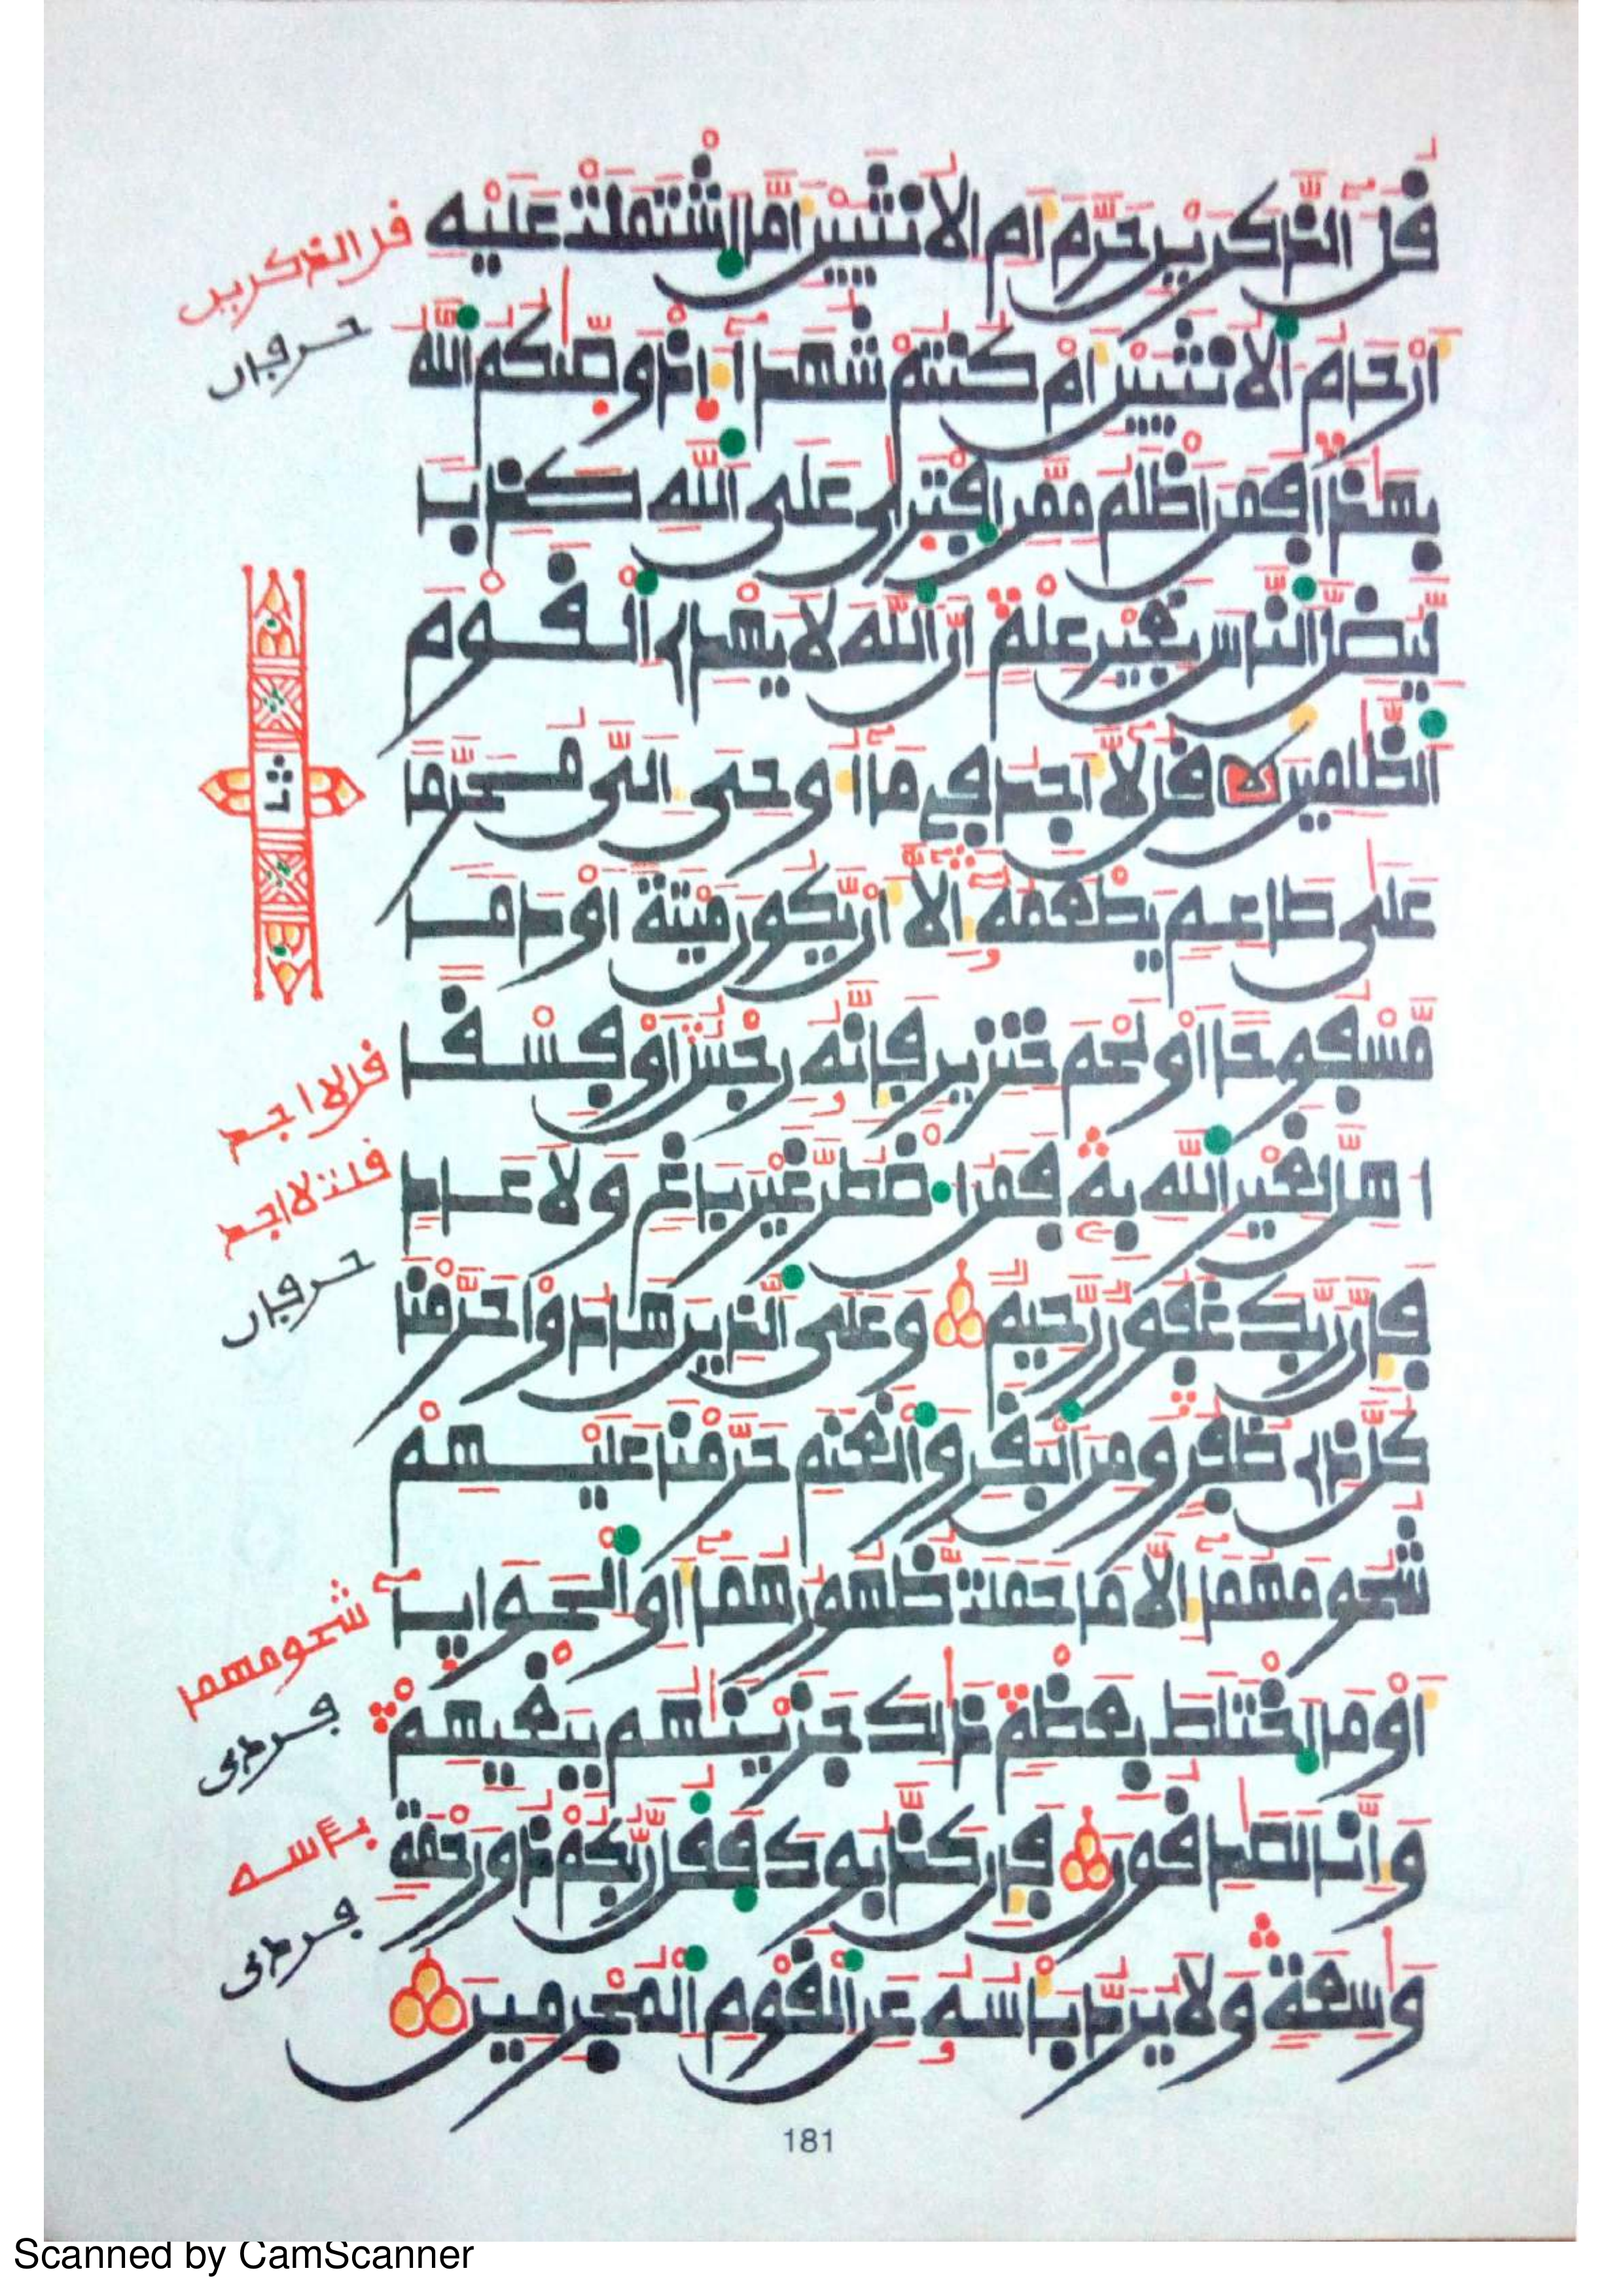 قل الذكرين حرم ام الانثيين اما اشتملت عليه
ارحام الانثيين ام كنتم شهدا اذ وصيكم الله
بهذا فمن اظلم ممن افترى على الله كذبا
ليضل الناس بغير علم ان الله لا يهدي القوم
الظلمين قل لا اجد في ما اوحي الي محرما
على طاعم يطعمه الا ان يكون ميتة او دما
مسفوحا او لحم خنزير فانه رجس او فسقا
اهل لغير الله به فمن اضطر غير باغ ولا عاد
فان ربك غفور رحيم وعلى الذين هادوا حرمنا
كل ذي ظفر ومن البقر والغنم حرمنا عليهم
شحومهما الا ما حملت ظهورهما او الحوايا
او ما اختلط بعظم ذلك جزينهم ببغيهم
وانا لصدقون فان كذبوك فقل ربكم ذو رحمة
وسعة ولا يرد باسه عن القوم المجرمين
قل الذكرين
حرفان
ثمن
قل لا اجد
قلت لا اجد
حرفان
شحومهما
فردى
باسه
فردى
181
Scanned by CamScanner